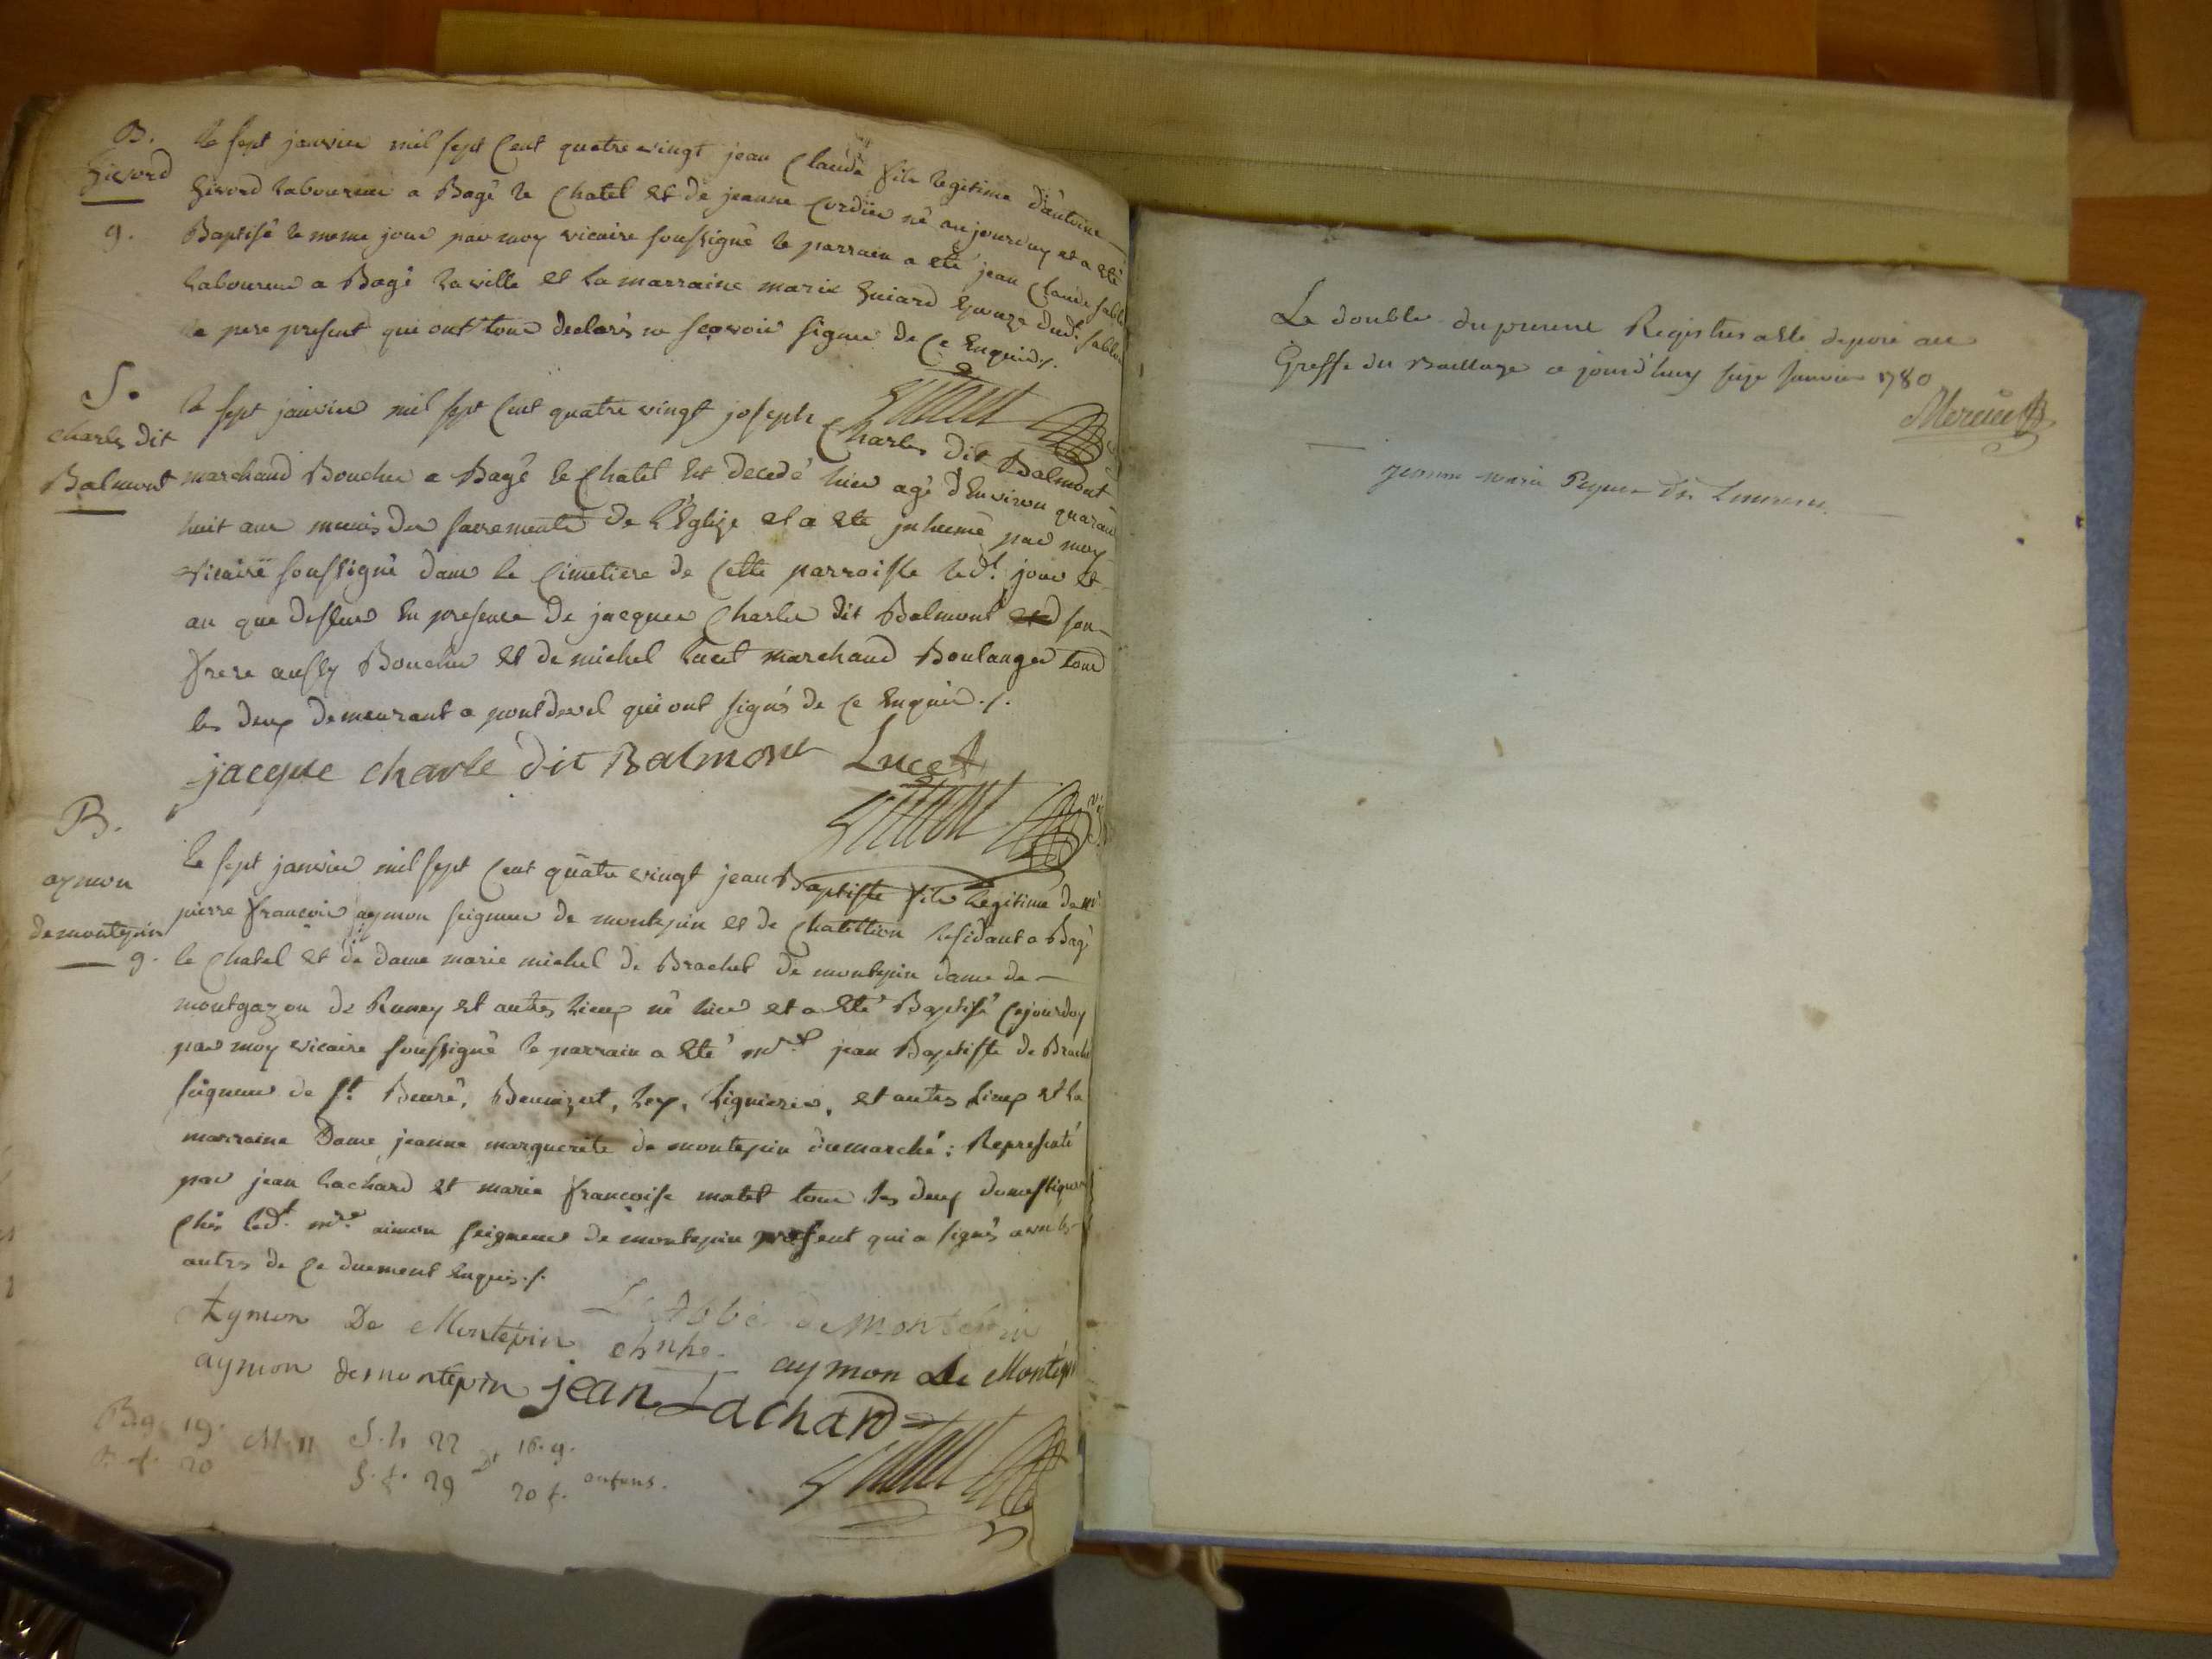 B.
Givord
g.
le sept janvier mil sept Cent quatre vingt jean Claude fils legitime d'antoine
Givord laboureur a Bagé le Chatel et de jeanne Cordier né aujourduy et a eté
Baptisé le meme jour par moy vicaire soussigné le parrain a eté jean Claude
laboureur a Bagé la ville et la marraine marie Guiard Epouze dudt.
le pere present qui ont tous declarés ne sçavoir signer de Ce Enquis ./.
S.
Charles dit
Balmont
le sept janvier mil sept Cent quatre vingt joseph Charles Dit Balmont
marchand Boucher a Bagé le Chatel Est decedé hier agé d'Environ quarante
huit ans munis des sacrements de L'Eglize et a eté jnhumé par moy
vicaire soussigné dans le Cimetiere de Cette parroisse ledt. jour et
an que dessus En presence de jacques Charles dit Balmont son
frere aussy Boucher et de michel Lucet marchand Boulanger tous
les deux demeurant a pontdevel qui ont signés de Ce Enquis ./.
jacque charle dit Balmont Lucet
B.
aymon
de montepin
g.
le sept janvier mil sept Cent quatre vingt jean Baptiste fils Legitime de mre
pierre francois aymon seigneur de montepin et de Chatillion residant a Bagé
le Chatel et de dame marie michel de Brachet de montepin dame de
montgazon de Rumey et autres lieux né hier et a eté Baptisé cejourduy
par moy vicaire soussigné le parrain a eté mre jean Baptiste de Brachet
seigneur de St. , , , , et autres lieux et la
marraine Dame jeanne marguerite de montepin dumarché : Representé
par jean Lachard et marie francoise matet tous les deux domestiques
Chés ledt. mre aimon seigneur de montepin present qui a signés avec les
autres de Ce duement Enquis ./.
Aymon De Montépin L'Abbé de Montépin
aymon de montepin aymon De Montépin
jean Lachard
B. g. 19. M. 11 S. h 22 16. g.
B. f. 20 S. f. 29 20 f. enfens.
Le double du present Registre a été deposé au
Greffe du Baillage ce jourd'huy seize Janvier 1780
Mercier
jeanne marie